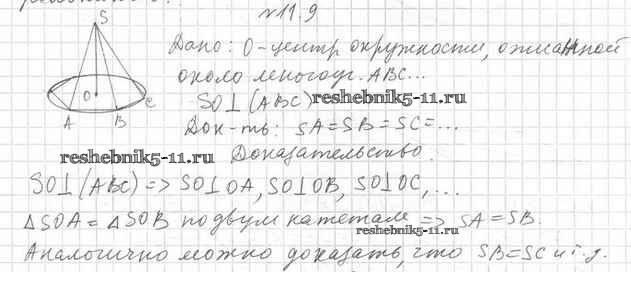 №11.9
S
Дано: О-центр окружности, описанной
около многоуг. ABC...
SO⊥(ABC) reshebnik5-11.ru
O
C
A
B
Док-ть: SA=SB=SC=...
reshebnik5-11.ru
Доказательство.
SO⊥(ABC) => SO⊥OA, SO⊥OB, SO⊥OC, ...
△SOA=△SOB по двум катетам => SA=SB.
reshebnik5-11.ru
Аналогично можно доказать, что SB=SC и т.д.